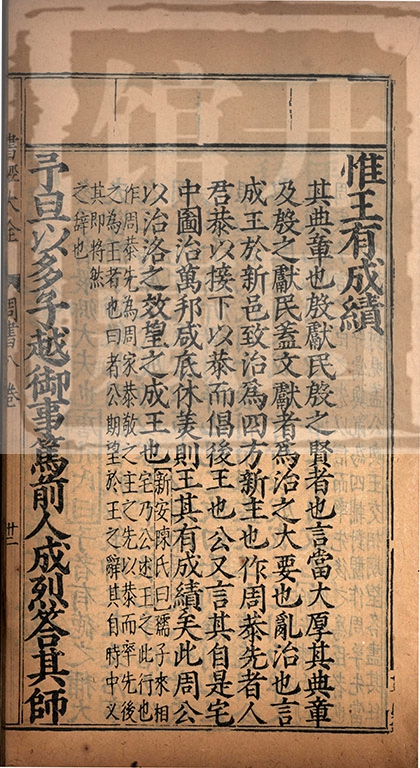 惟王有成績
其典章也殷獻民殷之賢者也言當大厚其典章
及殷之獻民蓋文獻者為治之大要也亂治也言
成王於新邑致治為四方新主也作周恭先者人
君恭以接下以恭而倡後王也公又言其自是宅
中圖治萬邦咸底休美則王其有成績矣此周公
以治洛之效望之成王也
新安陳氏曰孺子來相
宅乃公述王之此行也
作周恭先為周家恭敬之主之先以恭而率先後
之為王者也曰者公期望於王之辭其自時中乂
其即將然
之辭也
予旦以多子越御事篤前人成烈答其師
書經大全
周書八卷
廿二